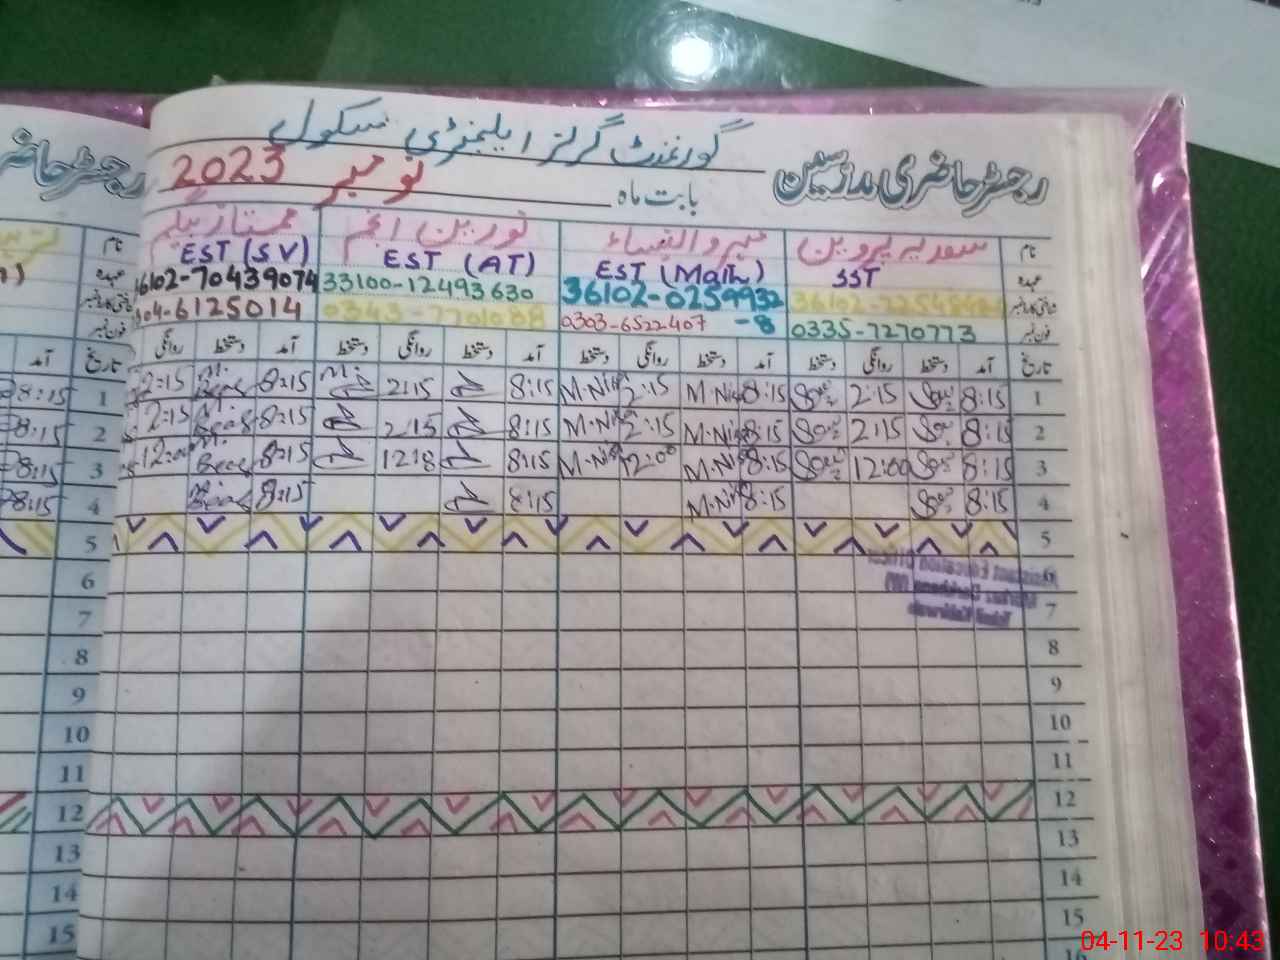 گورنمنٹ گرلز ایلیمنٹری سکول
رجسٹر حاضری مدرسین
بابت ماہ نومبر 2023
نام سعدیہ پروین مہرو النساء نورین انجم ممتاز بیگم نام
عہدہ SST EST (Math) EST (AT) EST (SV) عہدہ
36102-0259932-8 33100-12493630 36102-70439074
فون نمبر 0335-7270773 0303-6522407 0343-7701088 04-6125014 فون نمبر
تاریخ آمد دستخط روانگی دستخط آمد دستخط روانگی دستخط آمد دستخط روانگی دستخط آمد دستخط روانگی تاریخ آمد
1 8:15 2:15 8:15 M.Nisa 2:15 M.Nisa 8:15 2:15 8:15 2:15 1 8:15
2 8:15 2:15 8:15 M.Nisa 2:15 M.Nisa 8:15 2:15 8:15 2:15 2 8:15
3 8:15 12:00 8:15 M.Nisa 12:00 M.Nisa 8:15 12:18 8:15 12:00 3 8:15
4 8:15 8:15 M.Nisa 8:15 8:15 4 8:15
5 5
6 6
7 7
8 8
9 9
10 10
11 11
12 12
13 13
14 14
15 15
16
04-11-23 10:43